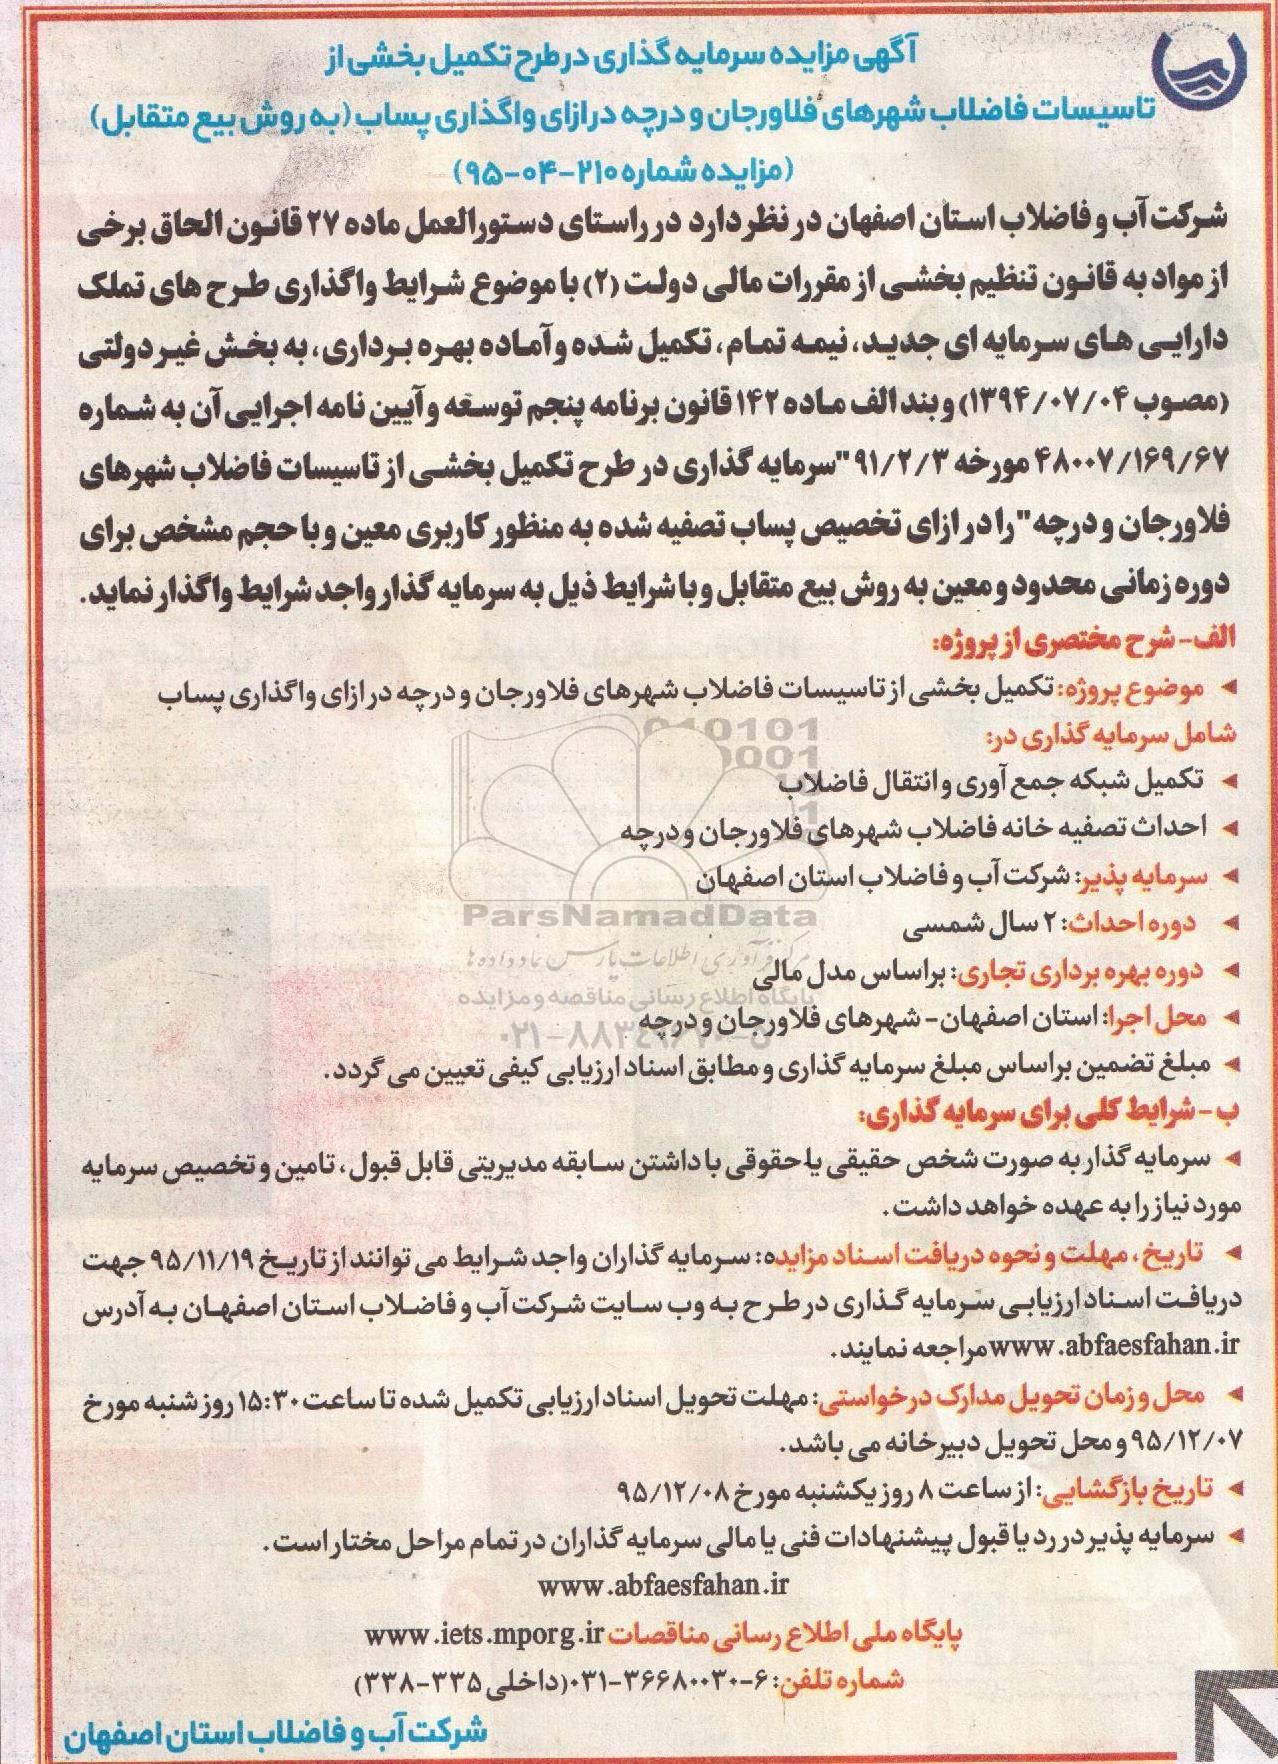 آگهی مزایده سرمایه گذاری در طرح تکمیل بخشی از
تاسیسات فاضلاب شهرهای فلاورجان و درچه در ازای واگذاری پساب (به روش بیع متقابل)
(مزایده شماره ۲۱۰-۰۴-۹۵)
شرکت آب و فاضلاب استان اصفهان در نظر دارد در راستای دستورالعمل ماده ۲۷ قانون الحاق برخی
از مواد به قانون تنظیم بخشی از مقررات مالی دولت (۲) با موضوع شرایط واگذاری طرح های تملک
دارایی های سرمایه ای جدید، نیمه تمام، تکمیل شده و آماده بهره برداری، به بخش غیر دولتی
(مصوب ۱۳۹۴/۰۷/۰۴) و بند الف ماده ۱۴۲ قانون برنامه پنجم توسعه و آیین نامه اجرایی آن به شماره
۴۸۰۰۷/۱۶۹/۶۷ مورخه ۹۱/۲/۳ "سرمایه گذاری در طرح تکمیل بخشی از تاسیسات فاضلاب شهرهای
فلاورجان و درچه" را در ازای تخصیص پساب تصفیه شده به منظور کاربری معین و با حجم مشخص برای
دوره زمانی محدود و معین به روش بیع متقابل و با شرایط ذیل به سرمایه گذار واجد شرایط واگذار نماید.
الف- شرح مختصری از پروژه:
◄ موضوع پروژه: تکمیل بخشی از تاسیسات فاضلاب شهرهای فلاورجان و درچه در ازای واگذاری پساب
شامل سرمایه گذاری در:
◄ تکمیل شبکه جمع آوری و انتقال فاضلاب
◄ احداث تصفیه خانه فاضلاب شهرهای فلاورجان و درچه
◄ سرمایه پذیر: شرکت آب و فاضلاب استان اصفهان
ParsNamadData
◄ دوره احداث: ۲ سال شمسی
مرکز فرآوری اطلاعات پارس نماد داده ها
◄ دوره بهره برداری تجاری: براساس مدل مالی
پایگاه اطلاع رسانی مناقصه و مزایده
◄ محل اجرا: استان اصفهان- شهرهای فلاورجان و درچه
۰۲۱-۸۸۳۴۹۶۷۰-۵
◄ مبلغ تضمین براساس مبلغ سرمایه گذاری و مطابق اسناد ارزیابی کیفی تعیین می گردد.
ب- شرایط کلی برای سرمایه گذاری:
◄ سرمایه گذار به صورت شخص حقیقی یا حقوقی با داشتن سابقه مدیریتی قابل قبول، تامین و تخصیص سرمایه
مورد نیاز را به عهده خواهد داشت.
◄ تاریخ، مهلت و نحوه دریافت اسناد مزایده: سرمایه گذاران واجد شرایط می توانند از تاریخ ۹۵/۱۱/۱۹ جهت
دریافت اسناد ارزیابی سرمایه گذاری در طرح به وب سایت شرکت آب و فاضلاب استان اصفهان به آدرس
www.abfaesfahan.ir مراجعه نمایند.
◄ محل و زمان تحویل مدارک درخواستی: مهلت تحویل اسناد ارزیابی تکمیل شده تا ساعت ۱۵:۳۰ روز شنبه مورخ
۹۵/۱۲/۰۷ و محل تحویل دبیرخانه می باشد.
◄ تاریخ بازگشایی: از ساعت ۸ روز یکشنبه مورخ ۹۵/۱۲/۰۸
◄ سرمایه پذیر در رد یا قبول پیشنهادات فنی یا مالی سرمایه گذاران در تمام مراحل مختار است.
www.abfaesfahan.ir
پایگاه ملی اطلاع رسانی مناقصات www.iets.mporg.ir
شماره تلفن: ۶-۰۳۱-۳۶۶۸۰۰۳۰ (داخلی ۳۳۵-۳۳۸)
شرکت آب و فاضلاب استان اصفهان